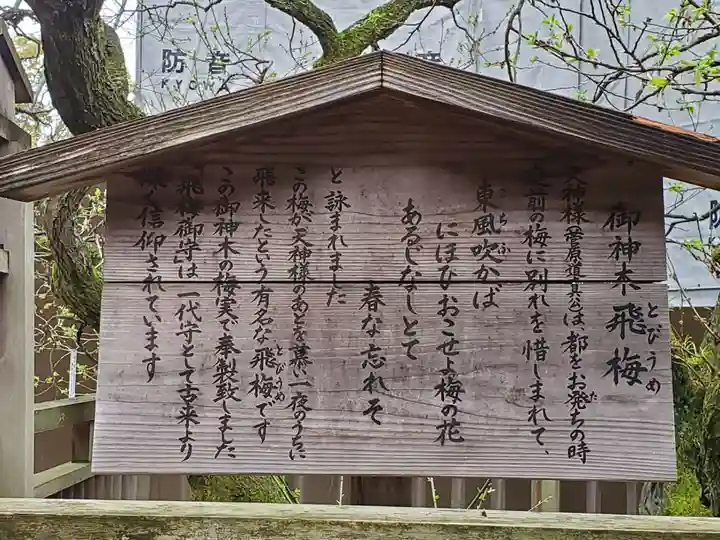 御神木 飛梅
とびうめ
天神様(菅原道真公)は、都をお発ちの時
た
庭前の梅に別れを惜しまれて、
東風吹かば
こちふ
にほひおこせよ梅の花
あるじなしとて
春な忘れそ
と詠まれました
この梅が天神様のあとを慕い一夜のうちに
飛来したという有名な飛梅です
とびうめ
この御神木の梅の実で奉製致しました
「飛梅御守」は一代守として古来より
く信仰されています
防音